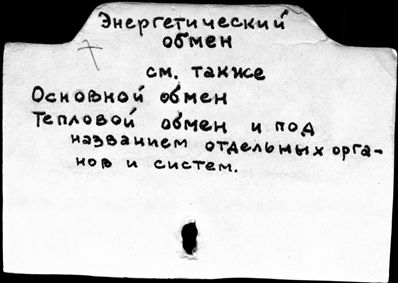 Энергетический
обмен
см. также
Основной обмен
Тепловой обмен и под
названием отдельных орга-
нов и систем.